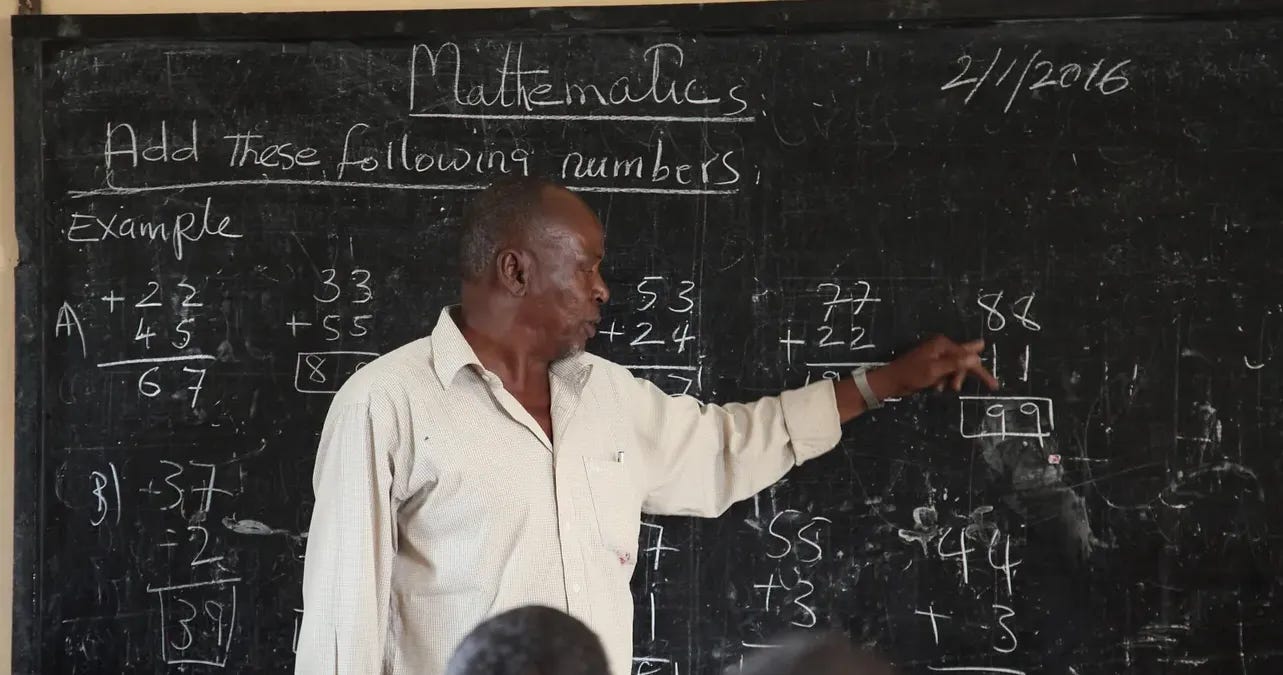 Mathematics.
2/1/2016
Add these following numbers.
Example
A) + 22 33 53 77 88
45 + 55 + 24 + 22 11
67 8 7 99
B) 37 7 55 44
2 1 + 3 + 3
39